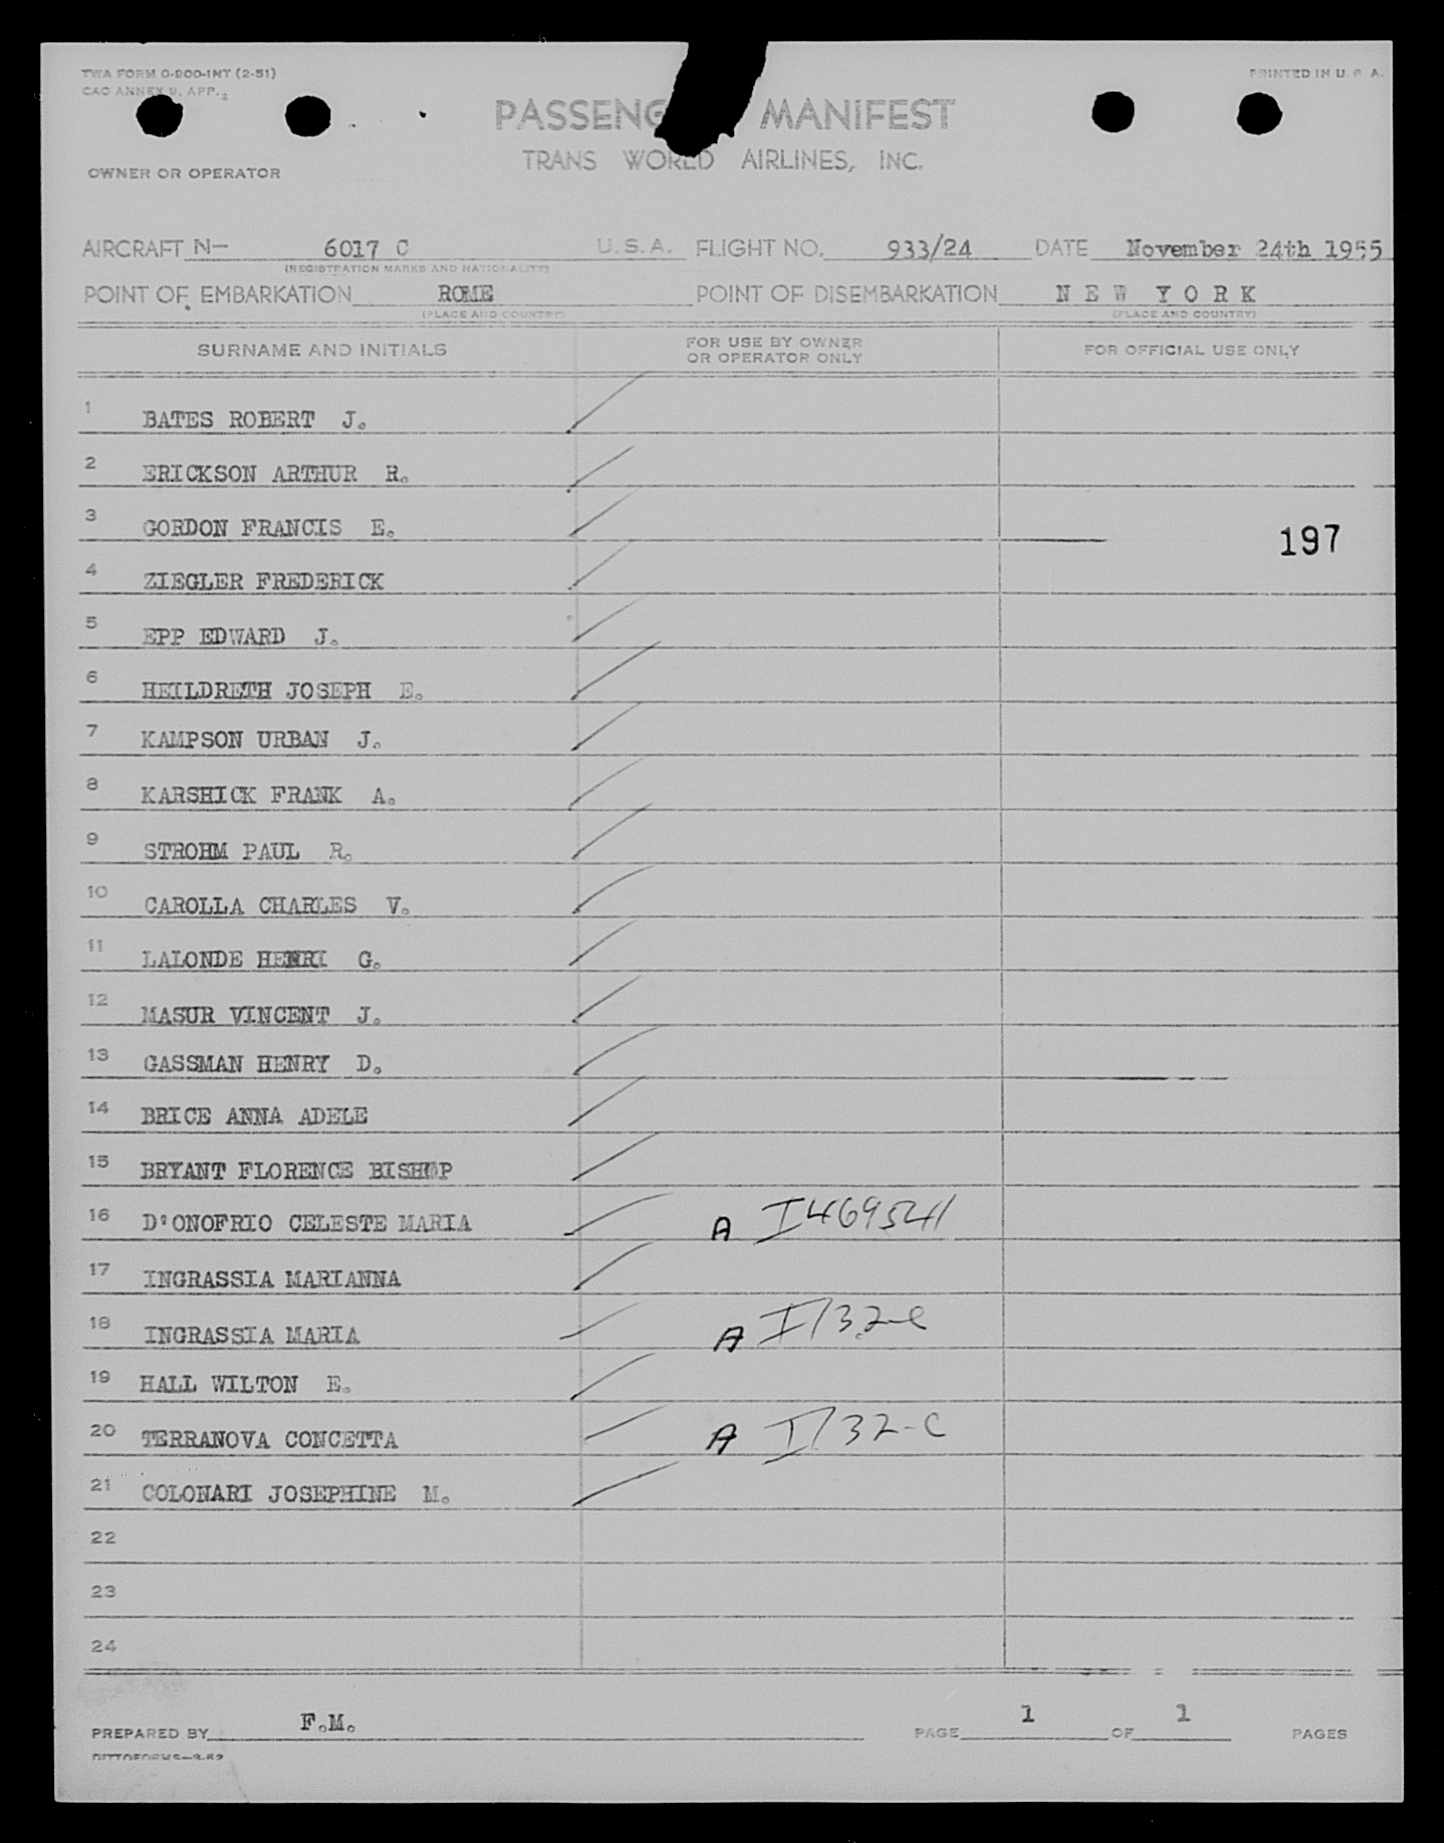 TWA FORM O-900-INT (2-51)
PRINTED IN U. S. A.
CAO ANNEX 9, APP.
PASSENG MANIFEST
TRANS WORLD AIRLINES, INC.
OWNER OR OPERATOR
AIRCRAFT N- 6017 C U.S.A. FLIGHT NO. 933/24 DATE November 24th 1955
(REGISTRATION MARKS AND NATIONALITY)
POINT OF EMBARKATION ROME POINT OF DISEMBARKATION N E W Y O R K
(PLACE AND COUNTRY) (PLACE AND COUNTRY)
SURNAME AND INITIALS FOR USE BY OWNER OR OPERATOR ONLY FOR OFFICIAL USE ONLY
1 BATES ROBERT J.
2 ERICKSON ARTHUR R.
3 GORDON FRANCIS E.
197
4 ZIEGLER FREDERICK
5 EPP EDWARD J.
6 HEILDRETH JOSEPH E.
7 KAMPSON URBAN J.
8 KARSHICK FRANK A.
9 STROHM PAUL R.
10 CAROLLA CHARLES V.
11 LALONDE HENRI G.
12 MASUR VINCENT J.
13 GASSMAN HENRY D.
14 BRICE ANNA ADELE
15 BRYANT FLORENCE BISHOP
16 D'ONOFRIO CELESTE MARIA A I469541
17 INGRASSIA MARIANNA
18 INGRASSIA MARIA A I132-C
19 HALL WILTON E.
20 TERRANOVA CONCETTA A I132-C
21 COLONARI JOSEPHINE M.
22
23
24
PREPARED BY F.M. PAGE 1 OF 1 PAGES
DITTOFORMS-2-52